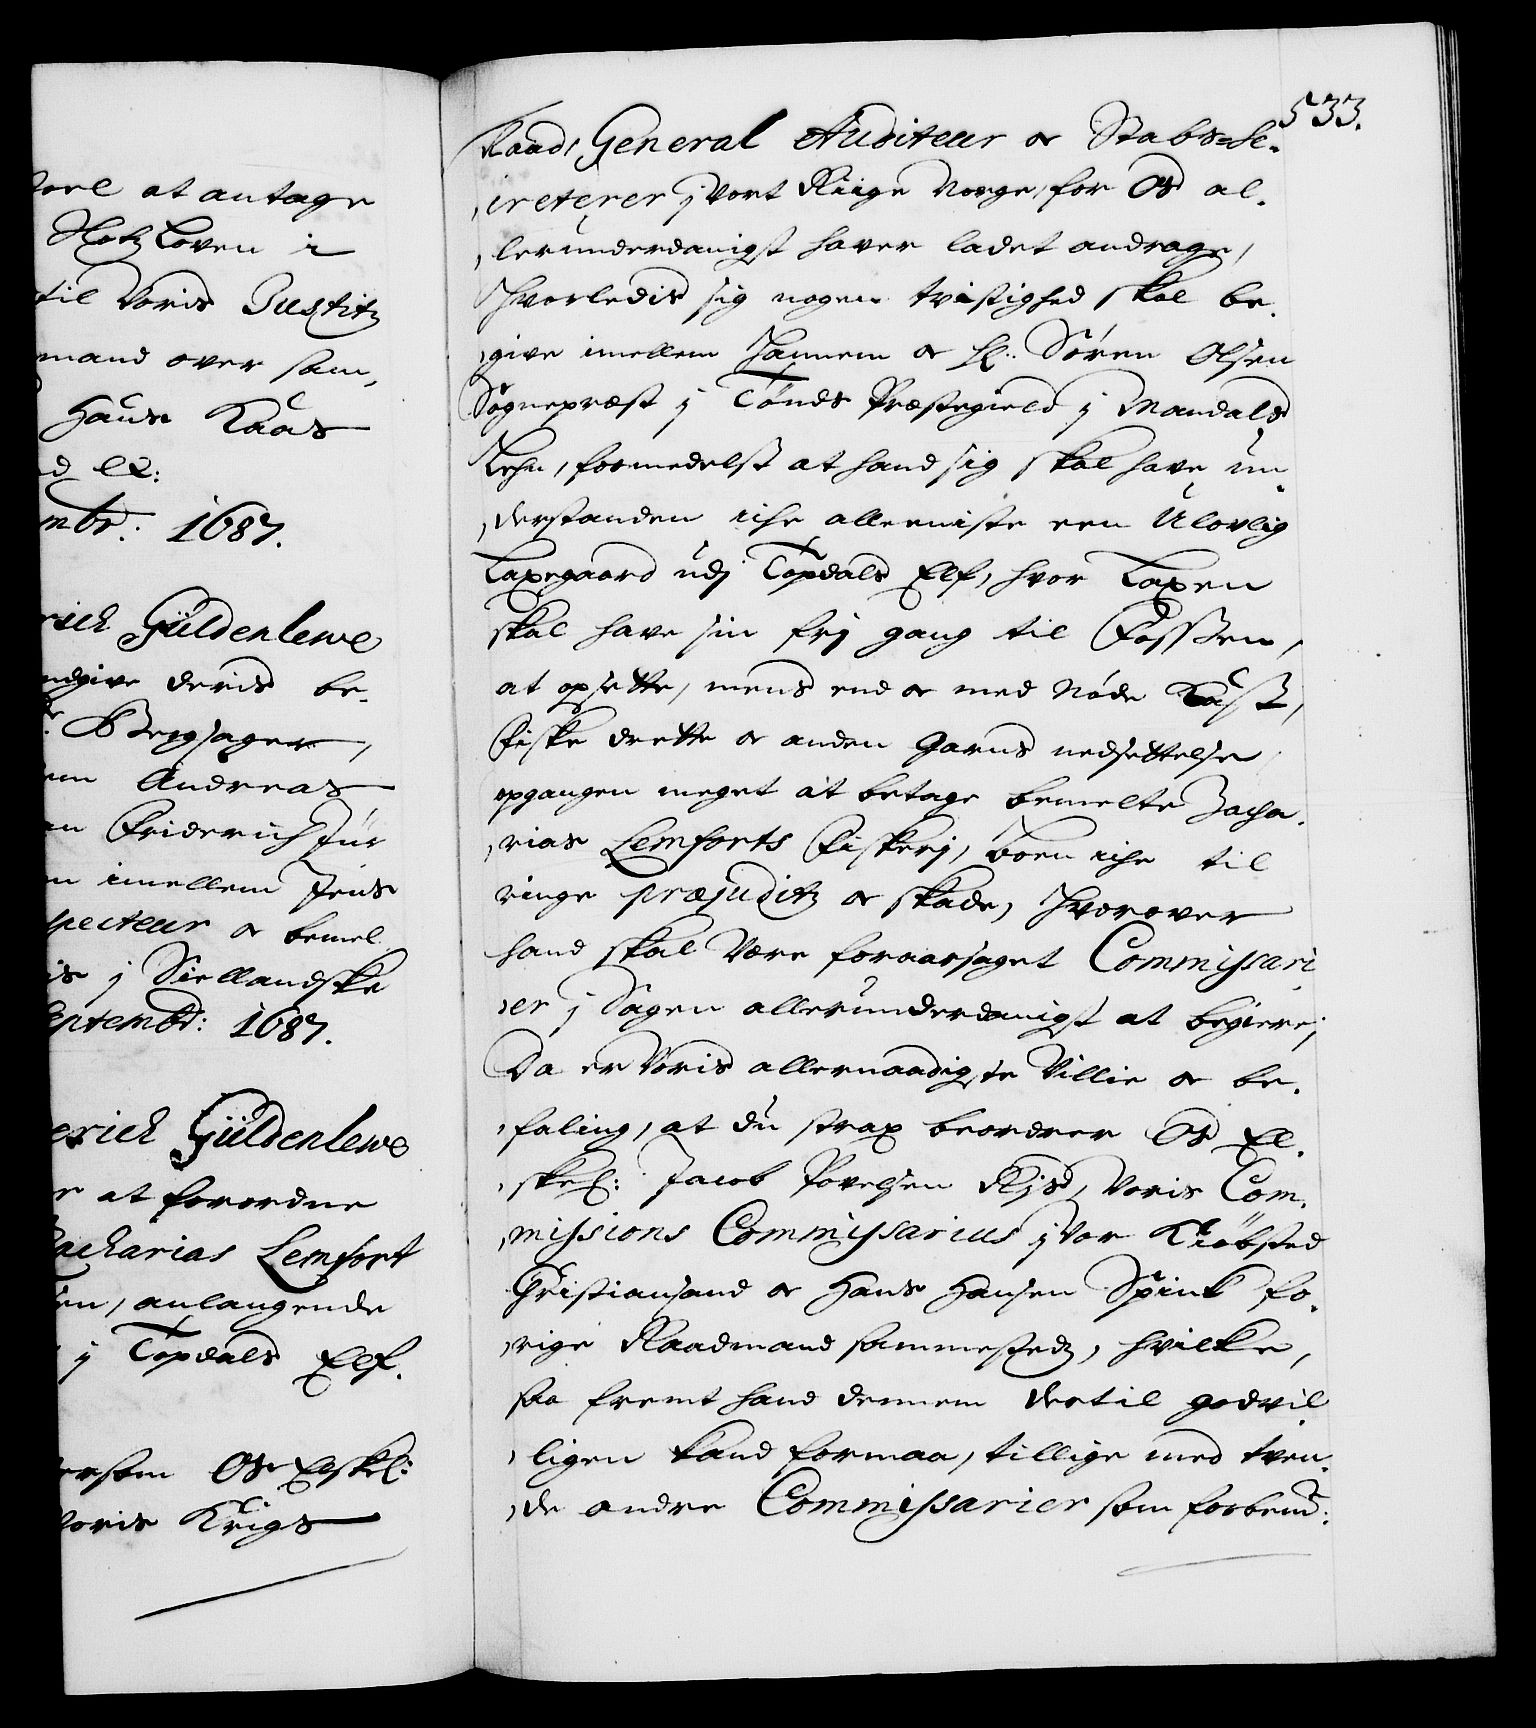 ioel at antage
Slotz Loven i
til Voris Justitz
mand over sam,
Hans Kaas
ed etc:
mbr: 1687.
rich Güldenlewe
ndgive deris be-
Bergsager,
em Andreas
an Friderich Jür
n imellem Jens
pecteur oc bemel
is j Siellandske
eptembr: 1687.
erich Güldenlewe
r at forordne
Zacharias Lemfort
sen, anlangende
j Topdals Elf.
ersom Os Elskel:
Voris Krigs
533.
Raad, General Auditeur oc Stabs-Se-
creterer j Vort Riige Norge, for Os al-
lerunderdanigst hafver ladet andrage,
Hvorledis sig nogen tvistighed skal be-
give imellem hannem oc Hr: Sören Olsen
Sognepræst j Tönds Præstegield j Mandals
Lehn, formedelst at hand sig skal have un-
derstanden iche alleeniste een Ulovlig
Laxegaard udj Topdals Elf, hvor Laxen
skal have sin frj gang til Fossen,
at opsette, mens end oc med Nöde Kast,
Fiske drette oc anden Garns nedsettelse
opgangen meget at betage bemelte Zacha-
rias Lemforts Fiskerj, hvem iche til
ringe præjuditz oc skade, Hvorover
hand skal være foraarsaget Commissari-
er j Sagen allerunderdanigst at begiere;
Da er Voris allernaadigste Villie oc be-
faling, at du strax beordrer Os El-
skel: Jacob Povelsen Rÿs, Voris Com-
missions Commissarius j Vor Kiöbsted
Christiansand oc Hans Hansen Spink fo-
rige Raadmand sammesteds, hvilke,
saa fremt hand dennem dertil godvil-
ligen kand formaa, tillige med tven-
de andre Commissarier som forbemt: